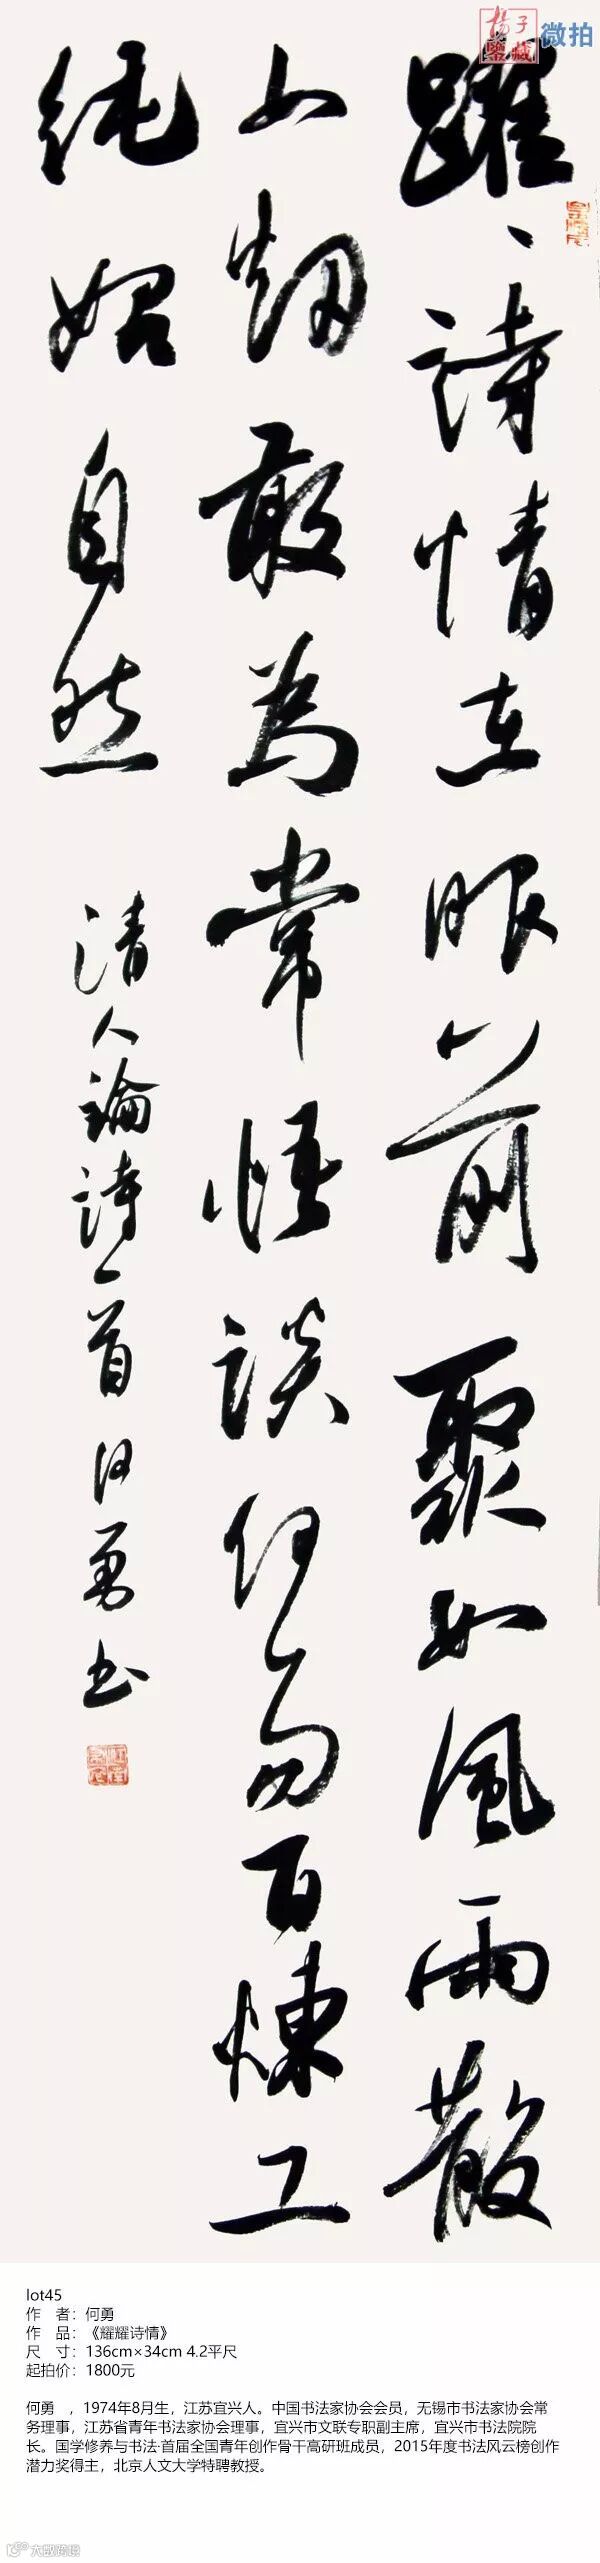 楊子
鑒藏 微拍
躍々詩情在眼前聚如風雨散
如烟敢為常語談何易百煉工
純始自然 清人論詩一首 何勇书
lot45
作 者：何勇
作 品：《耀耀诗情》
尺 寸：136cm×34cm 4.2平尺
起拍价：1800元
何勇 ，1974年8月生，江苏宜兴人。中国书法家协会会员，无锡市书法家协会常
务理事，江苏省青年书法家协会理事，宜兴市文联专职副主席，宜兴市书法院院
长。国学修养与书法·首届全国青年创作骨干高研班成员，2015年度书法风云榜创作
潜力奖得主，北京人文大学特聘教授。
大数跨境